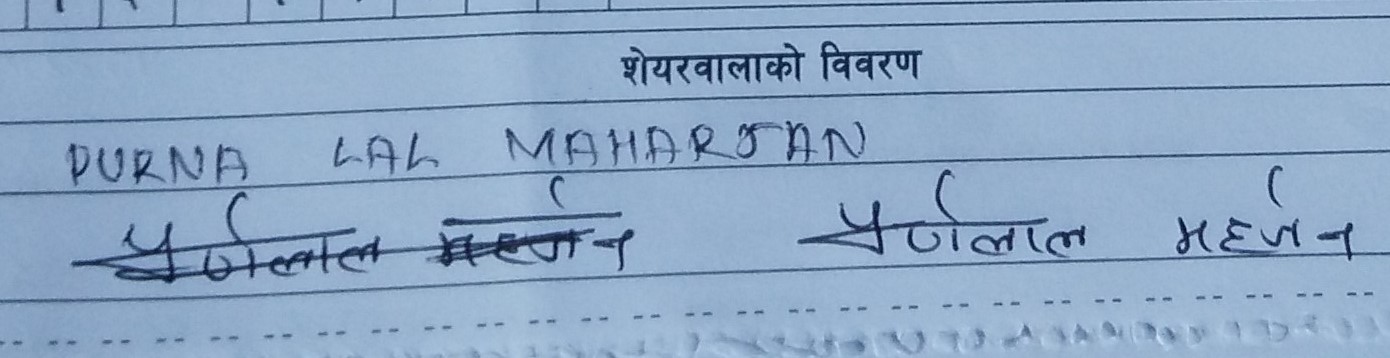 शेयरवालाको विवरण
PURNA LAL MAHARJAN
पुर्णलाल महर्जन पुर्णलाल महर्जन